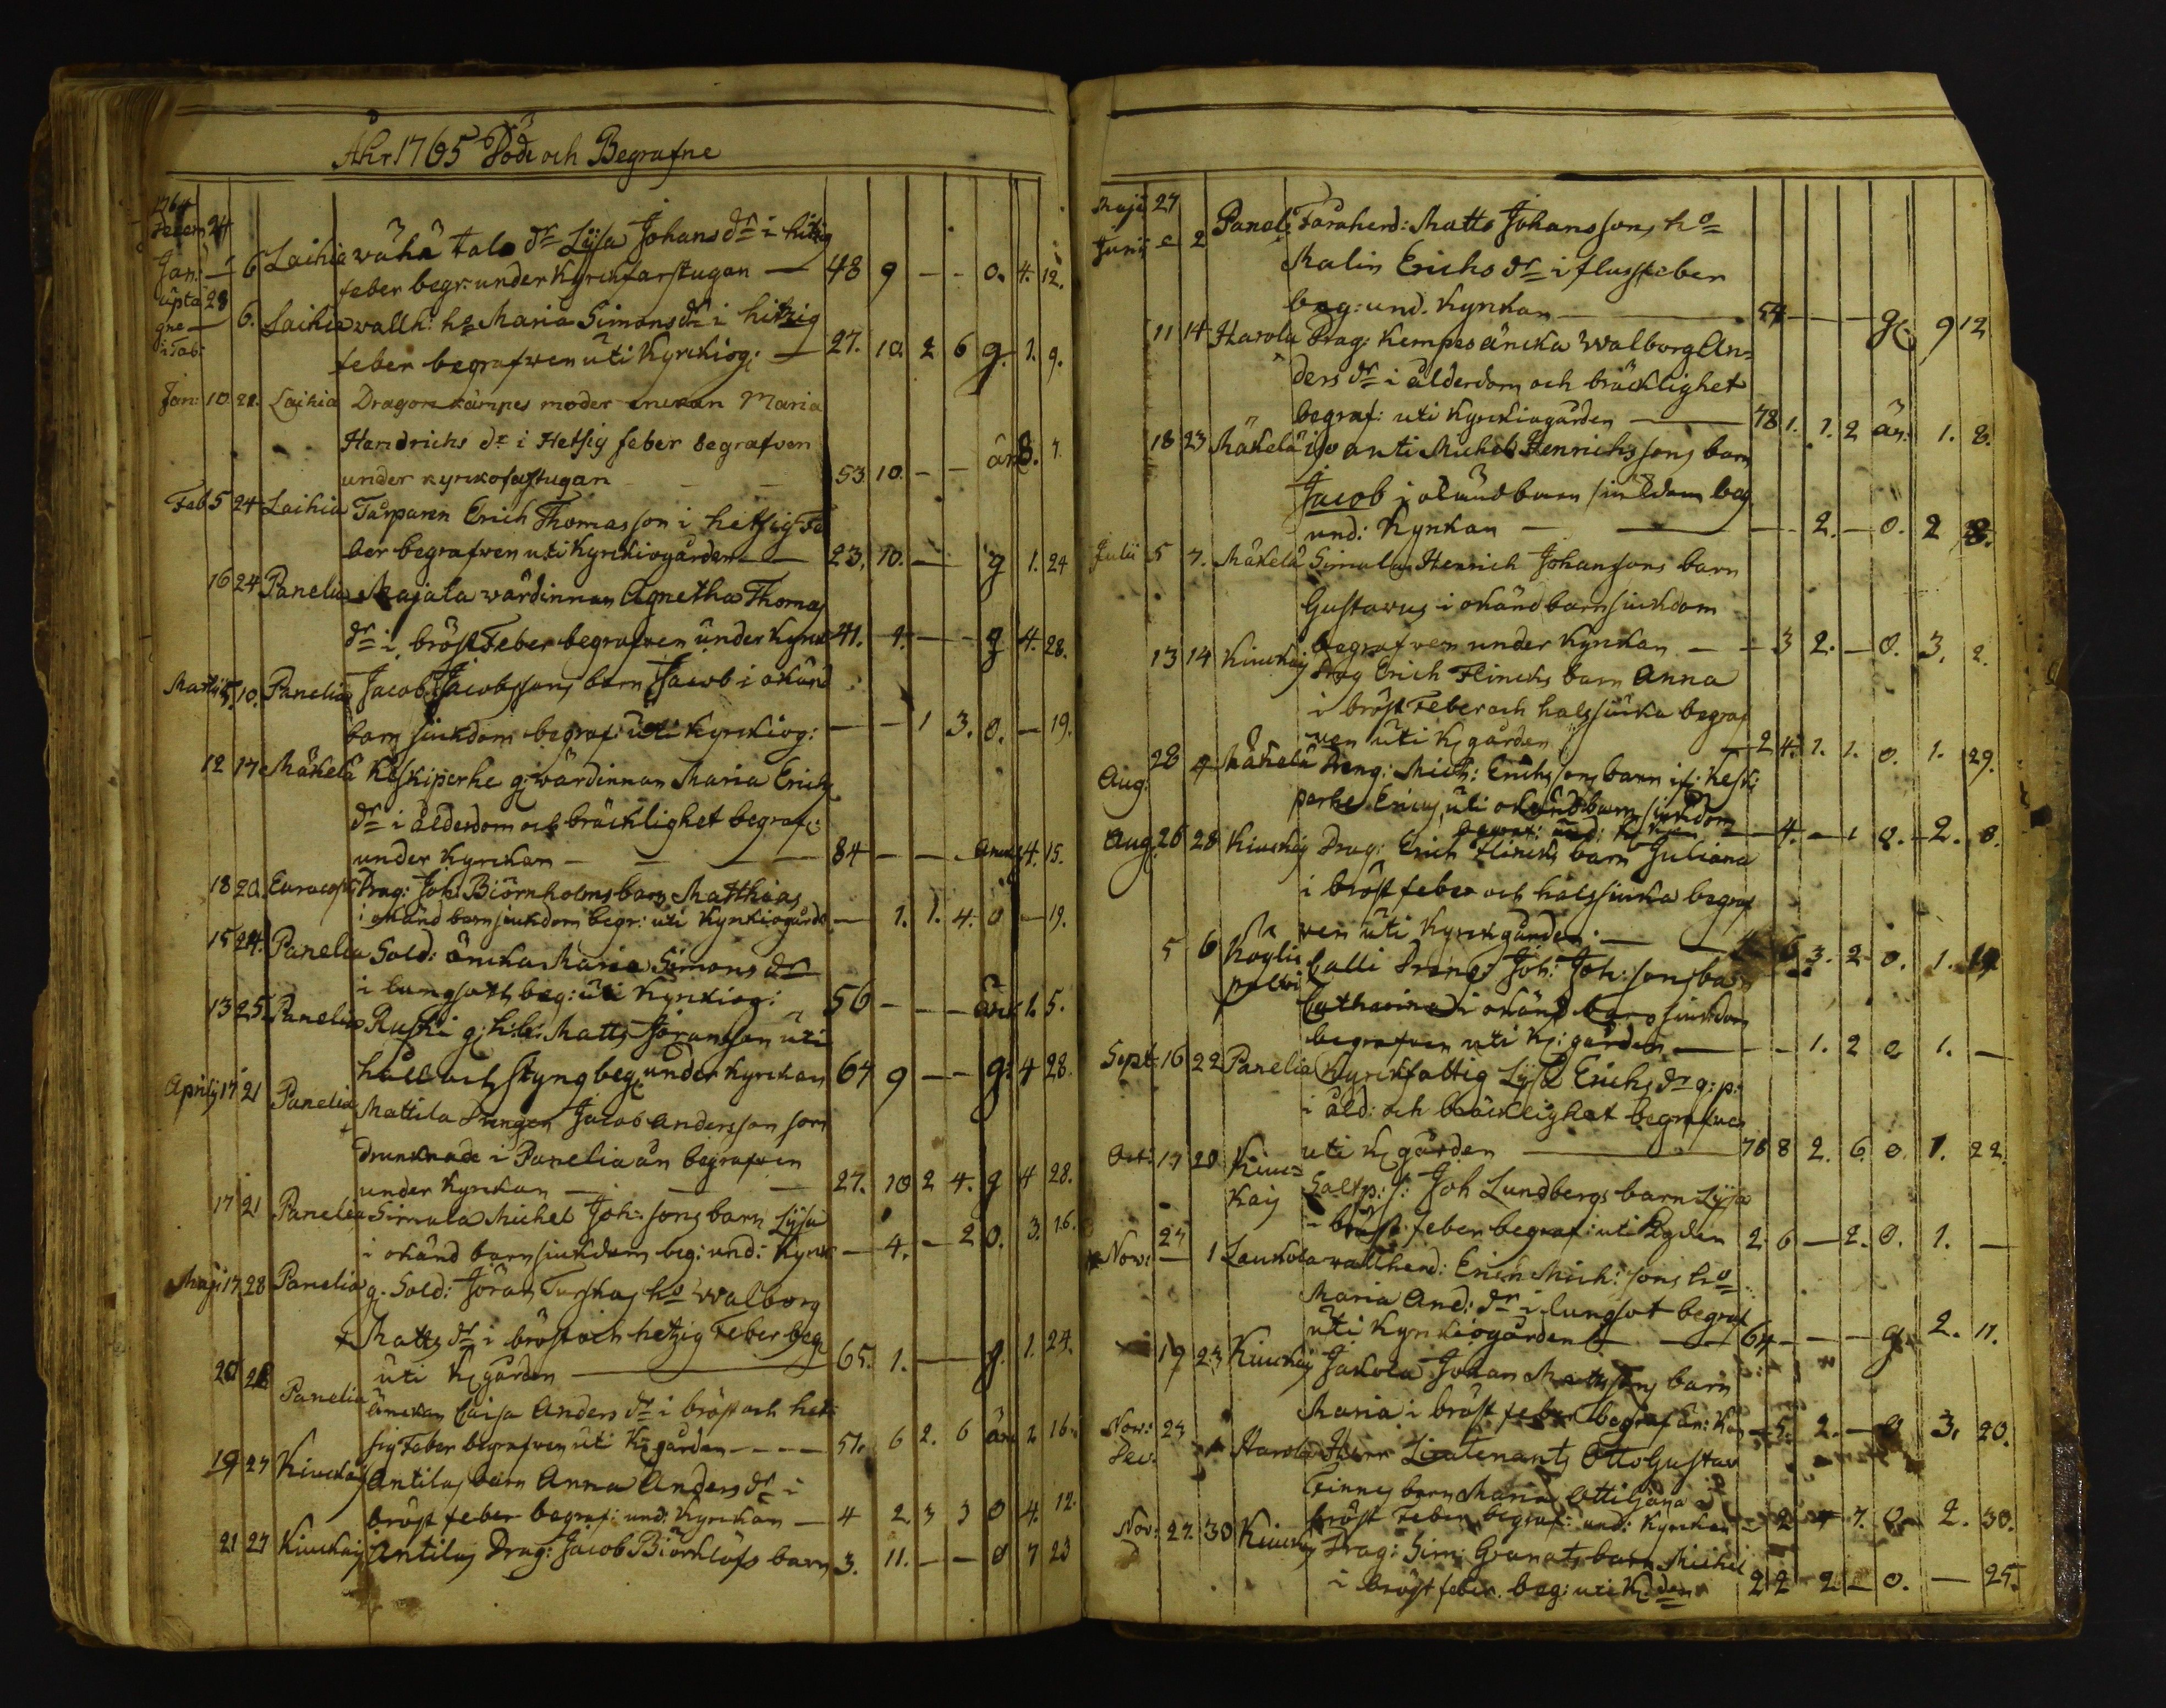 Åhr 1765 Döde och Begrafne
1764
Decem 24
Jan: 6 Laihia wähä talo dr Lijsa Johans dr i hitzig
feber begr: under Kyrckfarstugan — 48 9 - - o. 4. 12.
28 6. Laihia wallh: ho Maria Simons dr i hitzig
feber begrafwen uti Kyrckiog: — 27. 10. 2 6 g. 1. 9.
Jan: 10. 21. Laihia Dragon kämpes moder enckan Maria
Handrichs dr i Hetsig feber begrafven
under kyrkofastugan 53. 10. - -
Feb 5 24 Laihia Tårparen Erich Thomasson i hetsig Fe
ber begrafven uti Kyrckiogården — 23. 10. — g 1. 24
16 24 Panelia Majala wärdinnan Agnetha Thomas
dr i bröst Feber begrafven under Kyrck 41. 4. — - g 4. 28.
Martij 5. 10. Panelia Jacob Jacobssons barn Jacob i okänd
barn siukdom begraf: uti Kyrckiog: — - 1 3. o. — 19.
12 17 Mäkelä Keskiperhe g: wärdinnan Maria Erichs
dr i ålderdom och bräcklighet begraf:
under Kyrckan — — — 84 — — 4. 15.
18 20. Euracoski Drag: Joh: Biörnholms barn Matthias
i okänd barnsiukdom begr: uti Kyrckiogård — 1. 1. 4. o — 19.
15 24. Panelia Sold: änka Maria Simons dr
i lungsoth beg: uti Kyrckiog: 56 - - - änk 1. 5.
13 25. Panelia Ruski g: h:b: Matts Jöransson uti
håll och styng beg: under Kyrckan 64 9 — - g: 4 28.
Aprilij 17 21 Panelia Mattila Drengen Jacob Andersson som
drunknade i Panelia ån begrafven
under Kyrckan — — — 27. 10 2 4. g 4 28.
17 21 Panelia Simula Michel Joh: sons barn Lijsa
i okänd barnsiukdom beg: und: Kyrck — 4. - 2 o. 3. 16.
Maji 17 28 Panelia g. Sold: Jöran Turskas ho Walborg
Matts dr i bröst och hetzig Feber beg:
uti K: gården — 65. 1. — g. 1. 24.
Panelia änckan Caisa Anders dr i bröst och het-
sig Feber begrafven uti K: gården — 51. 6 2. 6 än 2 16.
19 27 Kiuckais Antilas barn Anna Anders dr i
bröst feber begraf: und: Kyrckan — 4 2 3 3 o 4. 12.
21 27 Kiuckais Antilas Drag: Jacob Biörklöfs barn 3. 11. — - o 7 23
Maji 27
Junij 2 Panel: Fåraherd: Matts Johanssons ho
Malin Erichs dr i flussfeber
beg: und. Kyrckan — 54 — — g: 9 12
11 14 Harola Drag: Kempes äncka Walborg An-
ders dr i ålderdom och bräcklighet
begraf: uti Kyrckiogården — 78 1. 1. 2 än: 1. 8.
18 23 Mäkelä iso anti Michel Henrichssons barn
Jacob i okänd barn siukdom beg
und: Kyrkan — — 2. — o. 2 8.
Julii 5 7. Mäkelä Simula Henrich Johanssons barn
Gustavus i okänd barnsiukdom
begrafven under Kyrckan — 3 2. — o. 3. 2.
13 14 Kiuckais Drag Erich Flincks barn Anna
i bröst Feber och halssiuka begraf
ven uti K: gården — 2 4. 1. 1. o. 1. 29.
Aug: 28 4 Mäkelä Dreng: Mich: Erichssons barn if: Keski
perhe Ericus uti okänd barn siukdom
begraf: und: Kyrckan — 4. — 1 o. 2. 8.
Aug: 26 28 Kiuckais Drag: Erich Flincks barn Juliana
i bröst feber och halssiuka begraf
ven uti Kyrckgården — 6 3. 2 o. 1. 19
5 6 Köyliö
polvi Calli Dreng: Joh: Joh: sons barn
Catharina i okänd barn siukdom
begrafven uti K: gården — — 1. 2 o 1. —
Sept 16 22 Panelia Kyrckfattig Lijsa Erichs dr g: p:
i åld: och bräcklighet begrafven
uti K: gården — 78 8 2. 6 o. 1. 22.
Oct: 17 20 Kiuc-
kais Saltp: s: Joh Lundbergs barn Lijsa
i bröst feber begraf: uti K:gden 2. 6 — 2. o. 1. —
27
Nov: — 1 Lauckola wallherd: Erich Mich: sons ho
Maria And: dr i lungsot begraf
uti Kyrckiogården — 64 — — g. 2. 11.
19 23 Kiuckais Jakola Johan Mattssons barn
Maria i bröst feber begraf un: K — 5. 2. — o 3. 20.
Nov: 23
Dec: 1 Harola Herr Lieutenants Otto Gustav
Finnes barn Maria Ottiliana i
bröst Feber begraf: und: Kyrckan — 2 7. o 2. 30.
Nov: 27. 30 Kiuckais Drag: Sim: Granats barn Michel
i bröst feber. beg: uti K: den 2 2 2 — o. — 25.